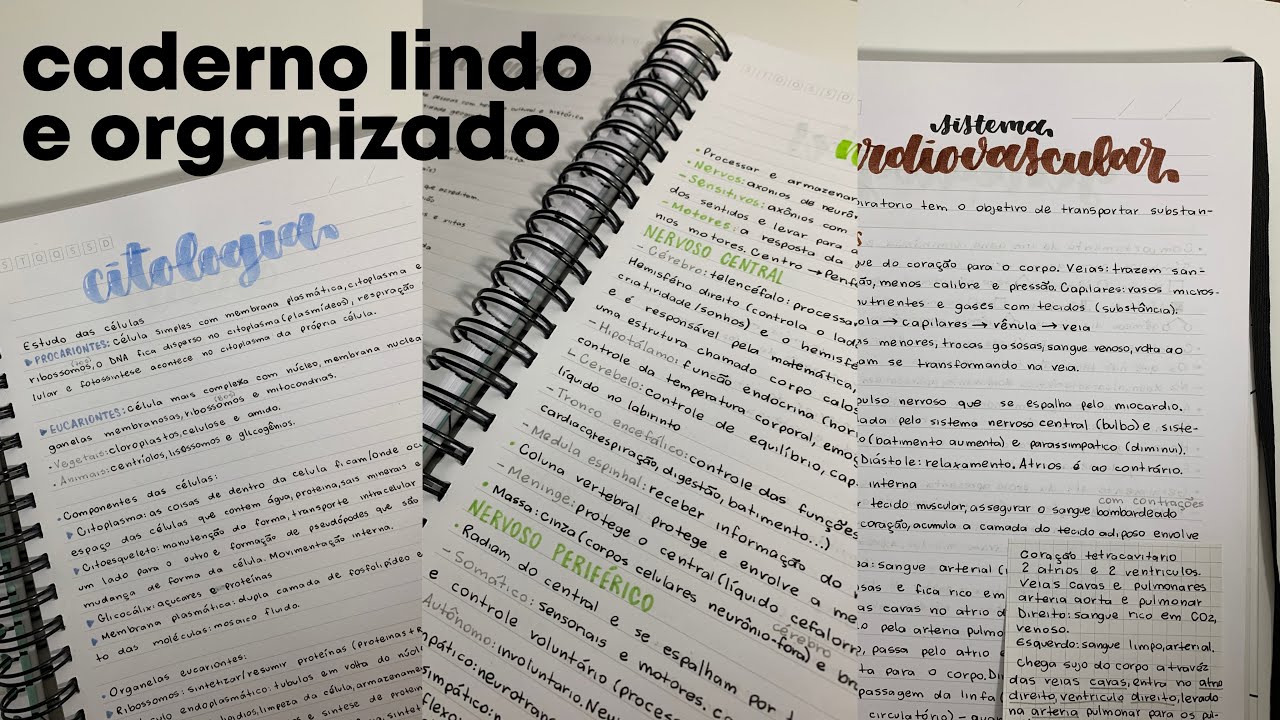 caderno lindo
e organizado
STQQSSD
citologia
Estudo das células
▶ PROCARIONTES: célula simples com membrana plasmática, citoplasma e
ribossomos, o DNA fica disperso no citoplasma (plasmídeos), respiração
lular e fotossíntese acontece no citoplasma da própria célula.
▶ EUCARIONTES: célula mais complexa com núcleo, membrana nuclea
ganelas membranosas, ribossomos e mitocondrias.
- Vegetais: cloroplastos, celulose e amido.
- Animais: centríolos, lisossomos e glicogênios.
• Componentes das células:
▶ Citoplasma: as coisas de dentro da célula ficam/onde oc
espaço das células que contem água, proteína, sais minerais e
▶ Citoesqueleto: manutenção da forma, transporte intracelular
um lado para o outro e formação de pseudópodes que são
mudança de forma da célula. Movimentação interna.
▶ Glicocálix: açucares e proteínas
▶ Membrana plasmática: dupla camada de fosfolipídeo e
to das moléculas: mosaico fluido.
• Organelas eucariontes:
▶ Ribossomos: sintetizar/resumir proteínas (proteinas+R
endoplasmático: tubulos em volta do núcle
limpeza da célula, armazename
e sintese de proteín
• Processar e armazenar
• Nervos: axônios de neurôn
- Sensitivos: axônios com
dos sentidos e levar para o
- Motores: a resposta da
nios motores. Centro → Perif
NERVOSO CENTRAL
- Cérebro: telencéfalo: processa
Hemisfério direito (controla o lado
criatividade/sonhos) e o hemisfé
e é responsável pela matemática,
uma estrutura chamado corpo calos
- Hipotálamo: função endocrina (hor
controle da temperatura corporal, emoç
- Cerebelo: controle de equilíbrio, cap
líquido no labirinto
- Tronco encefálico: controle das funções
cardiaca, respiração, digestão, batimento...)
- Medula espinhal: receber informação do
Coluna vertebral protege e envolve a me
- Meninge: protege o central (líquido cefalorr
• Massa: cinza (corpos celulares neurônio-fora) e br
cérebro
NERVOSO PERIFÉRICO
• Radiam do central e se espalham por t
- Somático: sensoriais e motores. co
e controle voluntário (process
Autônomo: involuntario. Neur
mpático: neurotrans
simpático:
flexo
sistema
ardiovascular
piratorio tem o objetivo de transportar substan-
que do coração para o corpo. Veias: trazem san-
ção, menos calibre e pressão. Capilares: vasos micros-
nutrientes e gases com tecidos (substância).
ola → capilares → vênula → veia
as menores, trocas gasosas, sangue venoso, volta ao
am se transformando na veia.
pulso nervoso que se espalha pelo miocardio.
lada pelo sistema nervoso central (bulbo) e siste-
o (batimento aumenta) e parassimpatico (diminui).
Diástole: relaxamento. Atrios é ao contrário.
interna
com contrações
tecido muscular, assegurar o sangue bombardeado
coração, acumula a camada do tecido adiposo envolve
ba: sangue arterial (
sas e fica rico em
as cavas no atrio d
o pela arteria pulmo
, passa pelo atrio
ta para o corpo. D
passagem da linfa
circulatório) - qua
Coração tetracavitário
2 atrios e 2 ventriculos.
Veias cavas e pulmonares
arteria aorta e pulmonar
Direito: sangue rico em CO2,
venoso.
Esquerdo: sangue limpo, arterial.
chega sujo do corpo a travéz
das veias cavas, entra no atrio
direito, ventriculo direito, levado
na arteria pulmonar para o pul-